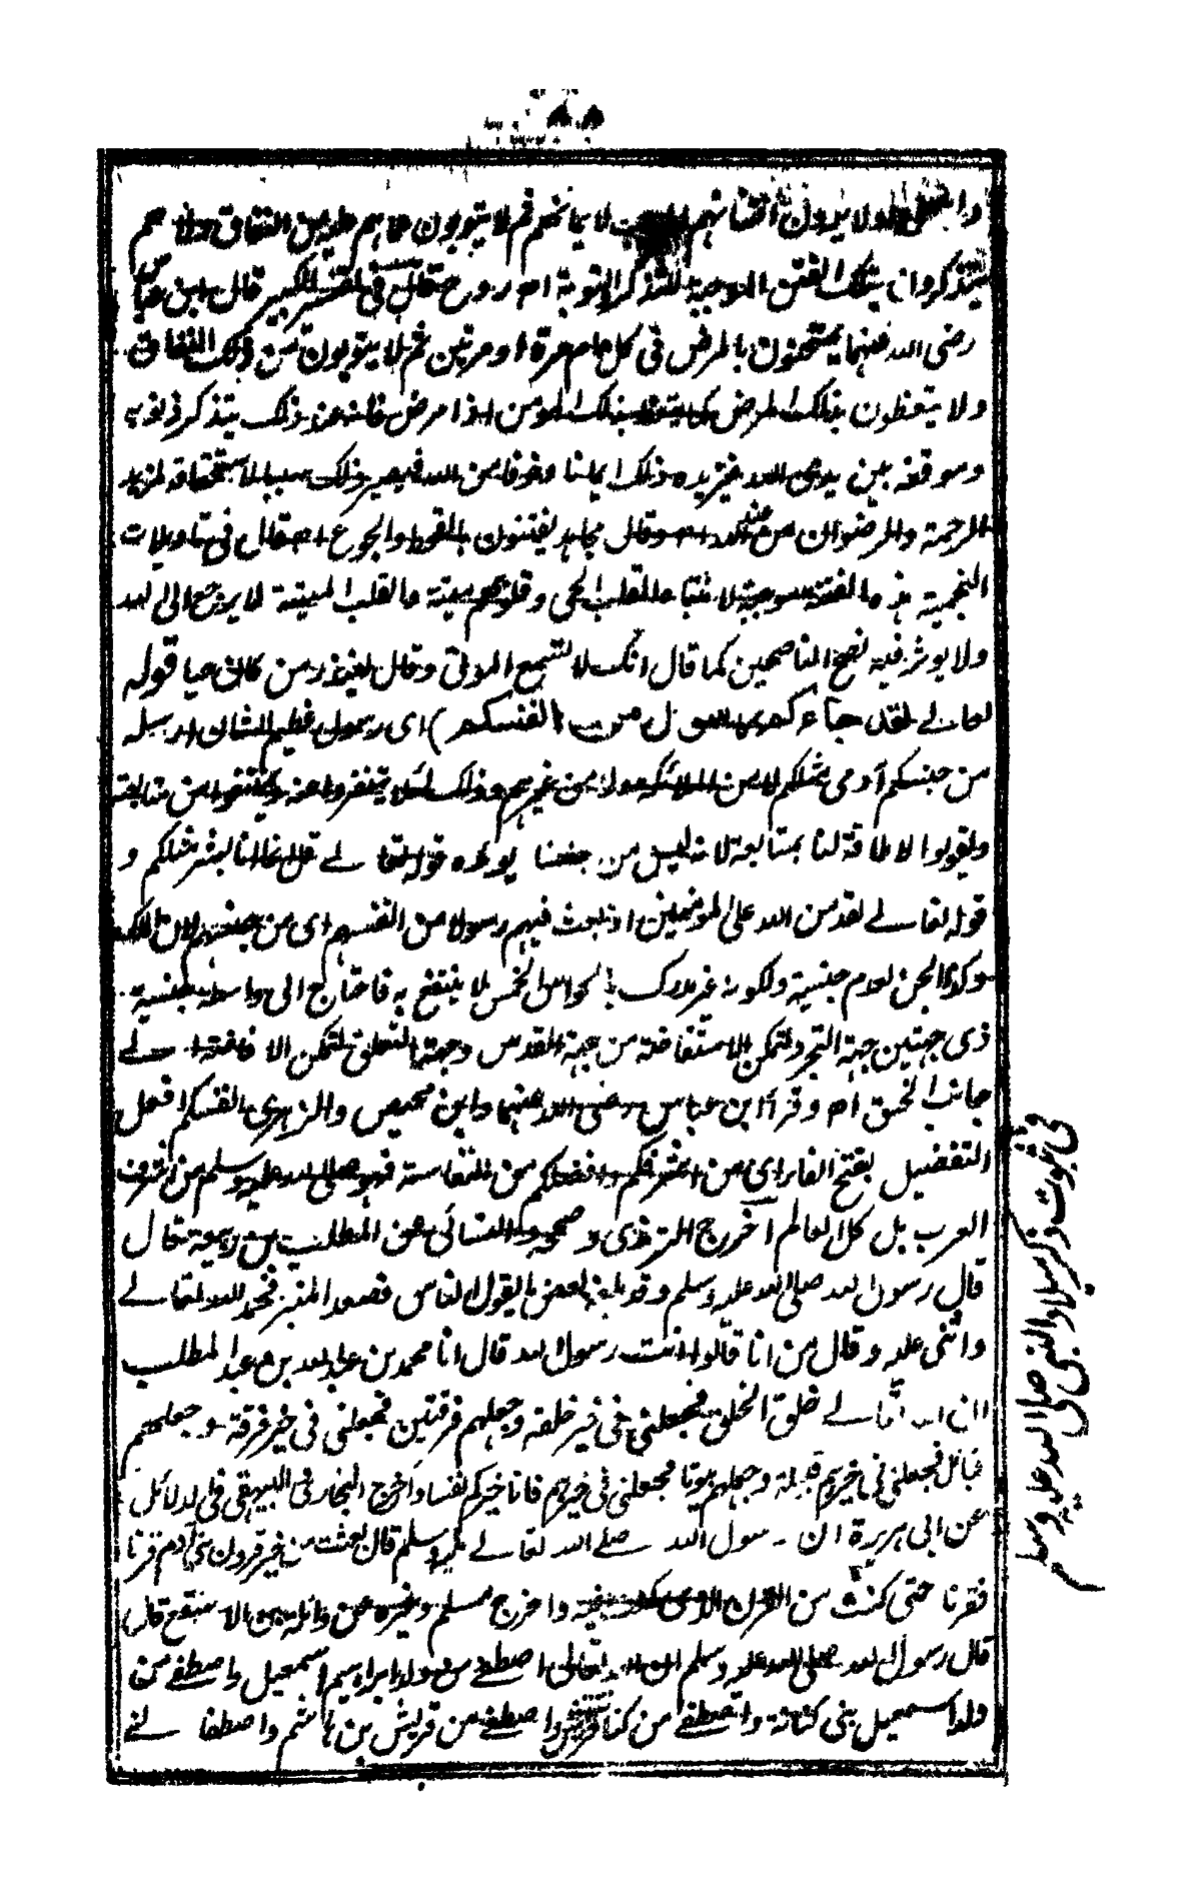 لا يتوبون عما هم عليه من النفاق ولا هم
يتذكرون بتلك الفتن الموجبة للتذكر والتوبة اه روح قال في التفسير الكبير قال ابن عباس
رضى الله عنهما يمتحنون بالمرض في كل عام مرة او مرتين ثم لا يتوبون من ذلك النفاق
ولا يتعظون بذلك المرض كما يتعظ بذلك المومن اذا مرض فانه عند ذلك يتذكر ذنوبه
وموقفه بين يدى الله فيزيده ذلك ايمانا وخوفا من الله فيصير ذلك سببا لاستحقاقه لمزيد
الرحمة والرضوان من عند الله اه وقال مجاهد يفتنون بالقحط والجوع اه قال في تاويلات
النجمية هذه الفتنة موجبة لانتباه القلب الحى وقلوبهم ميتة والقلب الميتة لا يرجع الى الله
ولا يوثر فيه نصح الناصحين كما قال انك لا تسمع الموتى وقال لينذر من كان حيا قوله
تعالے لقد جاءكم رسول من انفسكم) اى رسول عظيم الشان ارسله
من جنسكم آدمى مثلكم لا من الملائكة ولا من غيرهم وذلك لئلا يتنفروا عنه ويمتنعوا من متابعته
ويقولوا لا طاقة لنا بمتابعة لانه ليس من جنسنا يوكده قوله تعالے قل انما انا بشر مثلكم و
قوله تعالے لقد من الله على المومنين اذ بعث فيهم رسولا من انفسهم اى من جنسهم لان الملك
وكذا الجن لعدم جنسية ولكونه غير مدرك بالحواس الخمس لا ينتفع به فاحتاج الى واسطة جنسية
ذى جهتين جهة التجرد لتمكن الاستفاضة من جهة القدس وجهة التعلق لتمكن الافاضة الے
جانب الخلق اه وقرأ ابن عباس رضى الله عنهما وابن محيص والزهرى انفسكم افعل
التفضيل بفتح الفا اى من اشرفكم وافضلكم من النفاسة فهو صلى الله عليه وسلم من اشرف
العرب بل كل العالم اخرج الترمذى وصححه والنسائى عن المطلب بن ربيعة قال
قال رسول الله صلى الله عليه وسلم وقد بلغه بعض ما يقول الناس فصعد المنبر فحمد الله تعالے
واثنى عليه وقال من انا قالوا انت رسول الله قال انا محمد بن عبد الله بن عبد المطلب
ان الله تعالے خلق الخلق فجعلنى في خير خلقه وجعلهم فرقتين فجعلنى في خير فرقة وجعلهم
قبائل فجعلنى في خيرهم قبيلة وجعلهم بيوتا فجعلنى في خيرهم فانا خيركم نفسا واخرج البخارى البيهقى في الدلائل
عن ابى هريرة ان رسول الله صلے الله تعالے عليه وسلم قال بعثت من خير قرون بنى آدم قرنا
فقرنا حتى كنت من القرن الذى كنت فيه واخرج مسلم وغيره عن واثلة بن الاسقع قال
قال رسول الله صلى الله عليه وسلم ان الله تعالى اصطفے من ولد ابراهيم اسمعيل واصطفے من
ولد اسمعيل بنى كنانة واصطفے من كنانة قريش واصطفے من قريش بن هاشم واصطفا نے
في ثبوت ذكر ميلاد النبى صلى الله عليه وسلم